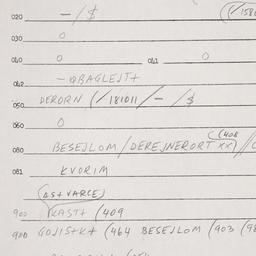 020 — / $ (/ 158
030 O
040 O 041 O
042 — QBAGLEJT+
050 DERORN (/ 181011 / — / $
060 O
080 BESEJLOM / DEREJNERORT XX) // (408
081 KVORIM
(AS+VARCE)
900 KAST+ (409
900 GOJIS+K+ (464 BESEJLOM (903 (98